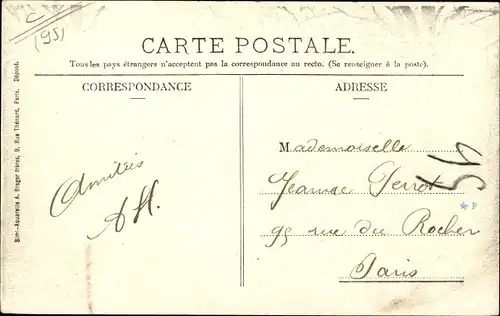 C
(95)
CARTE POSTALE.
Tous les pays étrangers n'acceptent pas la correspondance au recto. (Se renseigner à la poste).
CORRESPONDANCE
ADRESSE
Simi-Aquarelle A. Breger frères, 9, Rue Thénard, Paris. Déposé.
Amitiés
AH.
Mademoiselle
Jeanne Perrot
95 rue du Rocher
Paris